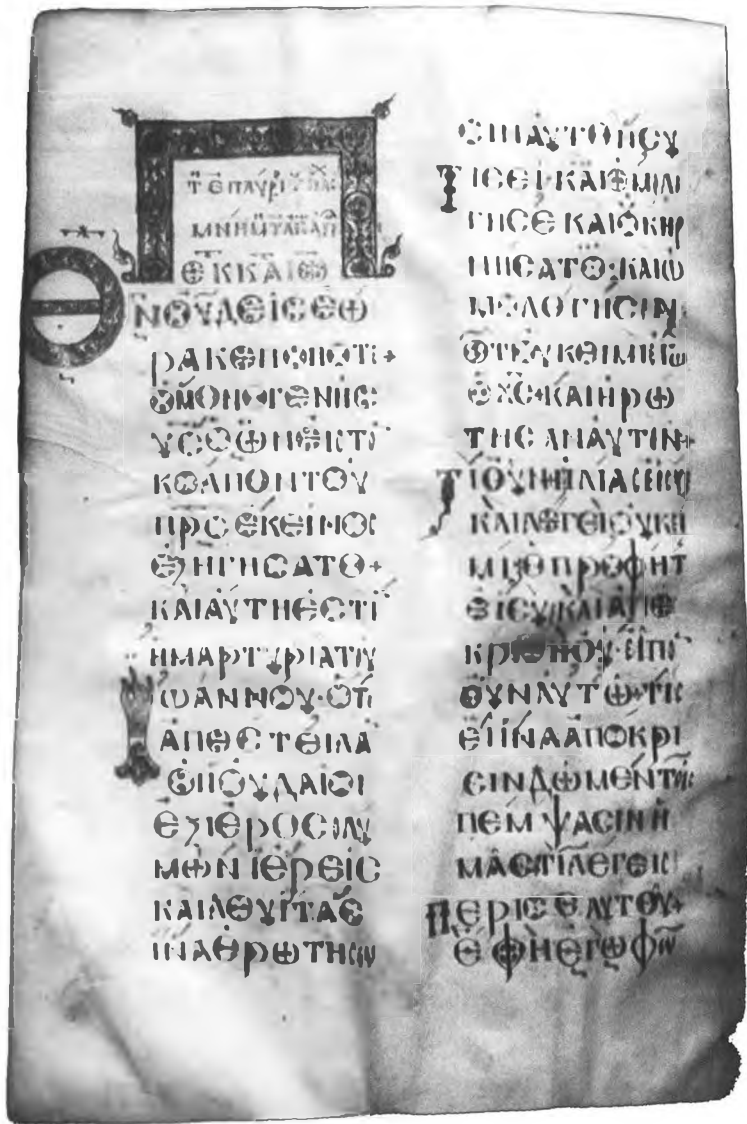 ΝΟΥΔΕΙCΕΩ
ΡΑΚΕΝΠΟΠΟΤΕ+
ΟΜΟΝΟΓΕΝΗC
ΥCΟΩΝΕΚΤΟ
ΚΟΛΠΟΝΤΟΥ
ΠΡCΕΚΕΙΝΟC
ΕΞΗΓΗCΑΤΟ+
ΚΑΙΑΥΤΗΕCΤΙ
ΗΜΑΡΤΥΡΙΑΤΟΥ
ΙΩΑΝΝΟΥ·ΟΤΕ
ΑΠΕCΤΕΙΛΑ
ΟΙΙΟΥΔΑΙΟΙ
ΕΞΙΕΡΟCΟΛΥ
ΜΩΝΙΕΡΕΙC
ΚΑΙΛΕΥΙΤΑC
ΙΝΑΕΡΩΤΗCΩ
CΙΝΑΥΤΟΝCΥ
ΤΙCΕΙΚΑΙΩΜΟΛΟ
ΓΗCΕΚΑΙΟΥΚΗΡ
ΝΗCΑΤΟ·ΚΑΙΩ
ΜΟΛΟΓΗCΕΝ
ΟΤΙΟΥΚΕΙΜΙΕΓΩ
ΟΧC+ΚΑΙΗΡΩ
ΤΗCΑΝΑΥΤΟΝ+
ΤΙΟΥΝΗΛΙΑCΕΙCΥ
ΚΑΙΛΕΓΕΙΟΥΚΕΙ
ΜΙΟΠΡΟΦΗΤ
ΕΙCΥΚΑΙΑΠΕ
ΚΡΙΘΗΟΥ·ΕΙΠΟ
ΟΥΝΑΥΤΩ+ΤΙC
ΕΙΙΝΑΑΠΟΚΡΙ
CΙΝΔΩΜΕΝΤΟΙC
ΠΕΜΨΑCΙΝΗ
ΜΑCΤΙΛΕΓΕΙC
ΠΕΡΙCΕΑΥΤΟΥ+
ΕΦΗΕΓΩΦΩ